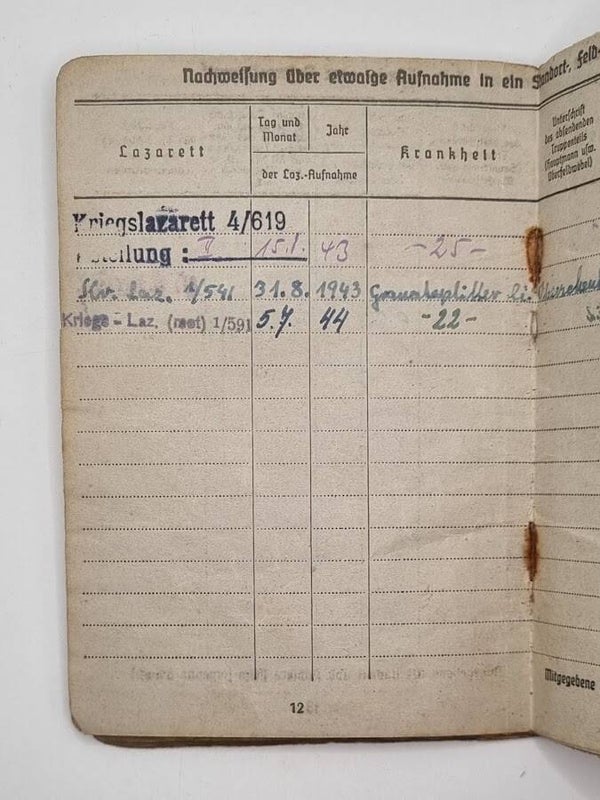 Nachweisung über etwaige Aufnahme in ein Standort-, Feld-
Lazarett
Tag und Monat
Jahr
der Laz.-Aufnahme
Krankheit
Unterschrift
des absendenden
Truppenteils
(Hauptmann usw.
Oberfeldwebel)
Kriegslazarett 4/619
Abteilung: II 15.1. 43 -25-
Laz. 1/541 31.8. 1943 Granatsplitter li.
Kriegs-Laz. (mot) 1/591 5.7. 44 -22-
Mitgegebene
12